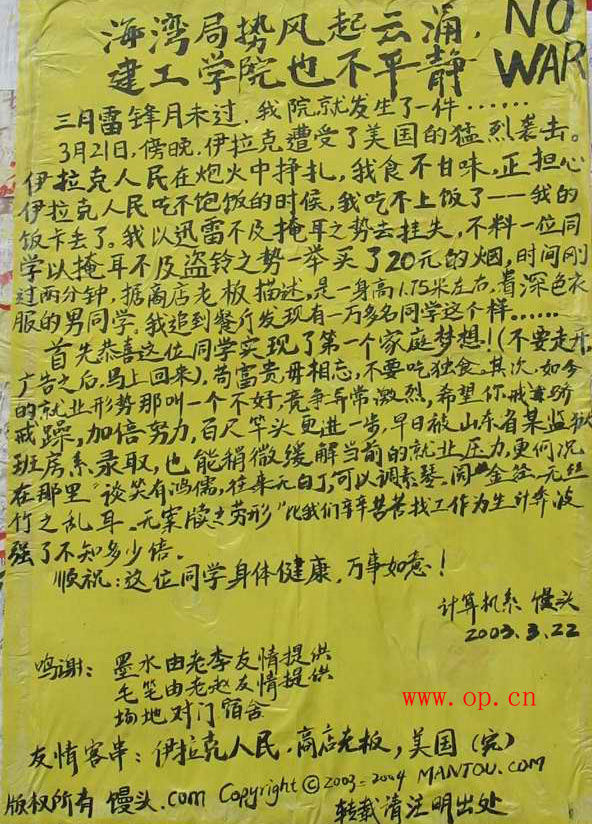 海湾局势风起云涌, NO
建工学院也不平静 WAR
三月雷锋月未过,我院就发生了一件……
3月21日,傍晚,伊拉克遭受了美国的猛烈袭击。
伊拉克人民在炮火中挣扎,我食不甘味,正担心
伊拉克人民吃不饱饭的时候,我吃不上饭了——我的
饭卡丢了。我以迅雷不及掩耳之势去挂失,不料一位同
学以掩耳不及盗铃之势一举买了20元的烟,时间刚
过两分钟,据商店老板描述,是一身高1.75米左右,着深色衣
服的男同学,我追到餐厅发现有一万多名同学这个样……
首先恭喜这位同学实现了第一个家庭梦想!(不要走开,
广告之后,马上回来),苟富贵毋相忘,不要吃独食。其次,如今
的就业形势那叫一个不好,竞争异常激烈,希望你戒骄
戒躁,加倍努力,百尺竿头更进一步,早日被山东省某监狱
班房系录取,也能稍微缓解当前的就业压力,更何况
在那里"谈笑有鸿儒,往来无白丁,可以调素琴。阅金经。无丝
竹之乱耳。无案牍之劳形"比我们辛辛苦苦找工作为生计奔波
强了不知多少倍。
顺祝:这位同学身体健康,万事如意!
计算机系 馒头
2003.3.22
鸣谢:墨水由老李友情提供
毛笔由老赵友情提供
场地对门宿舍
www.op.cn
友情客串:伊拉克人民,商店老板,美国(完)
版权所有 馒头.com Copyright©2003-2004 MANTOU.COM
转载请注明出处